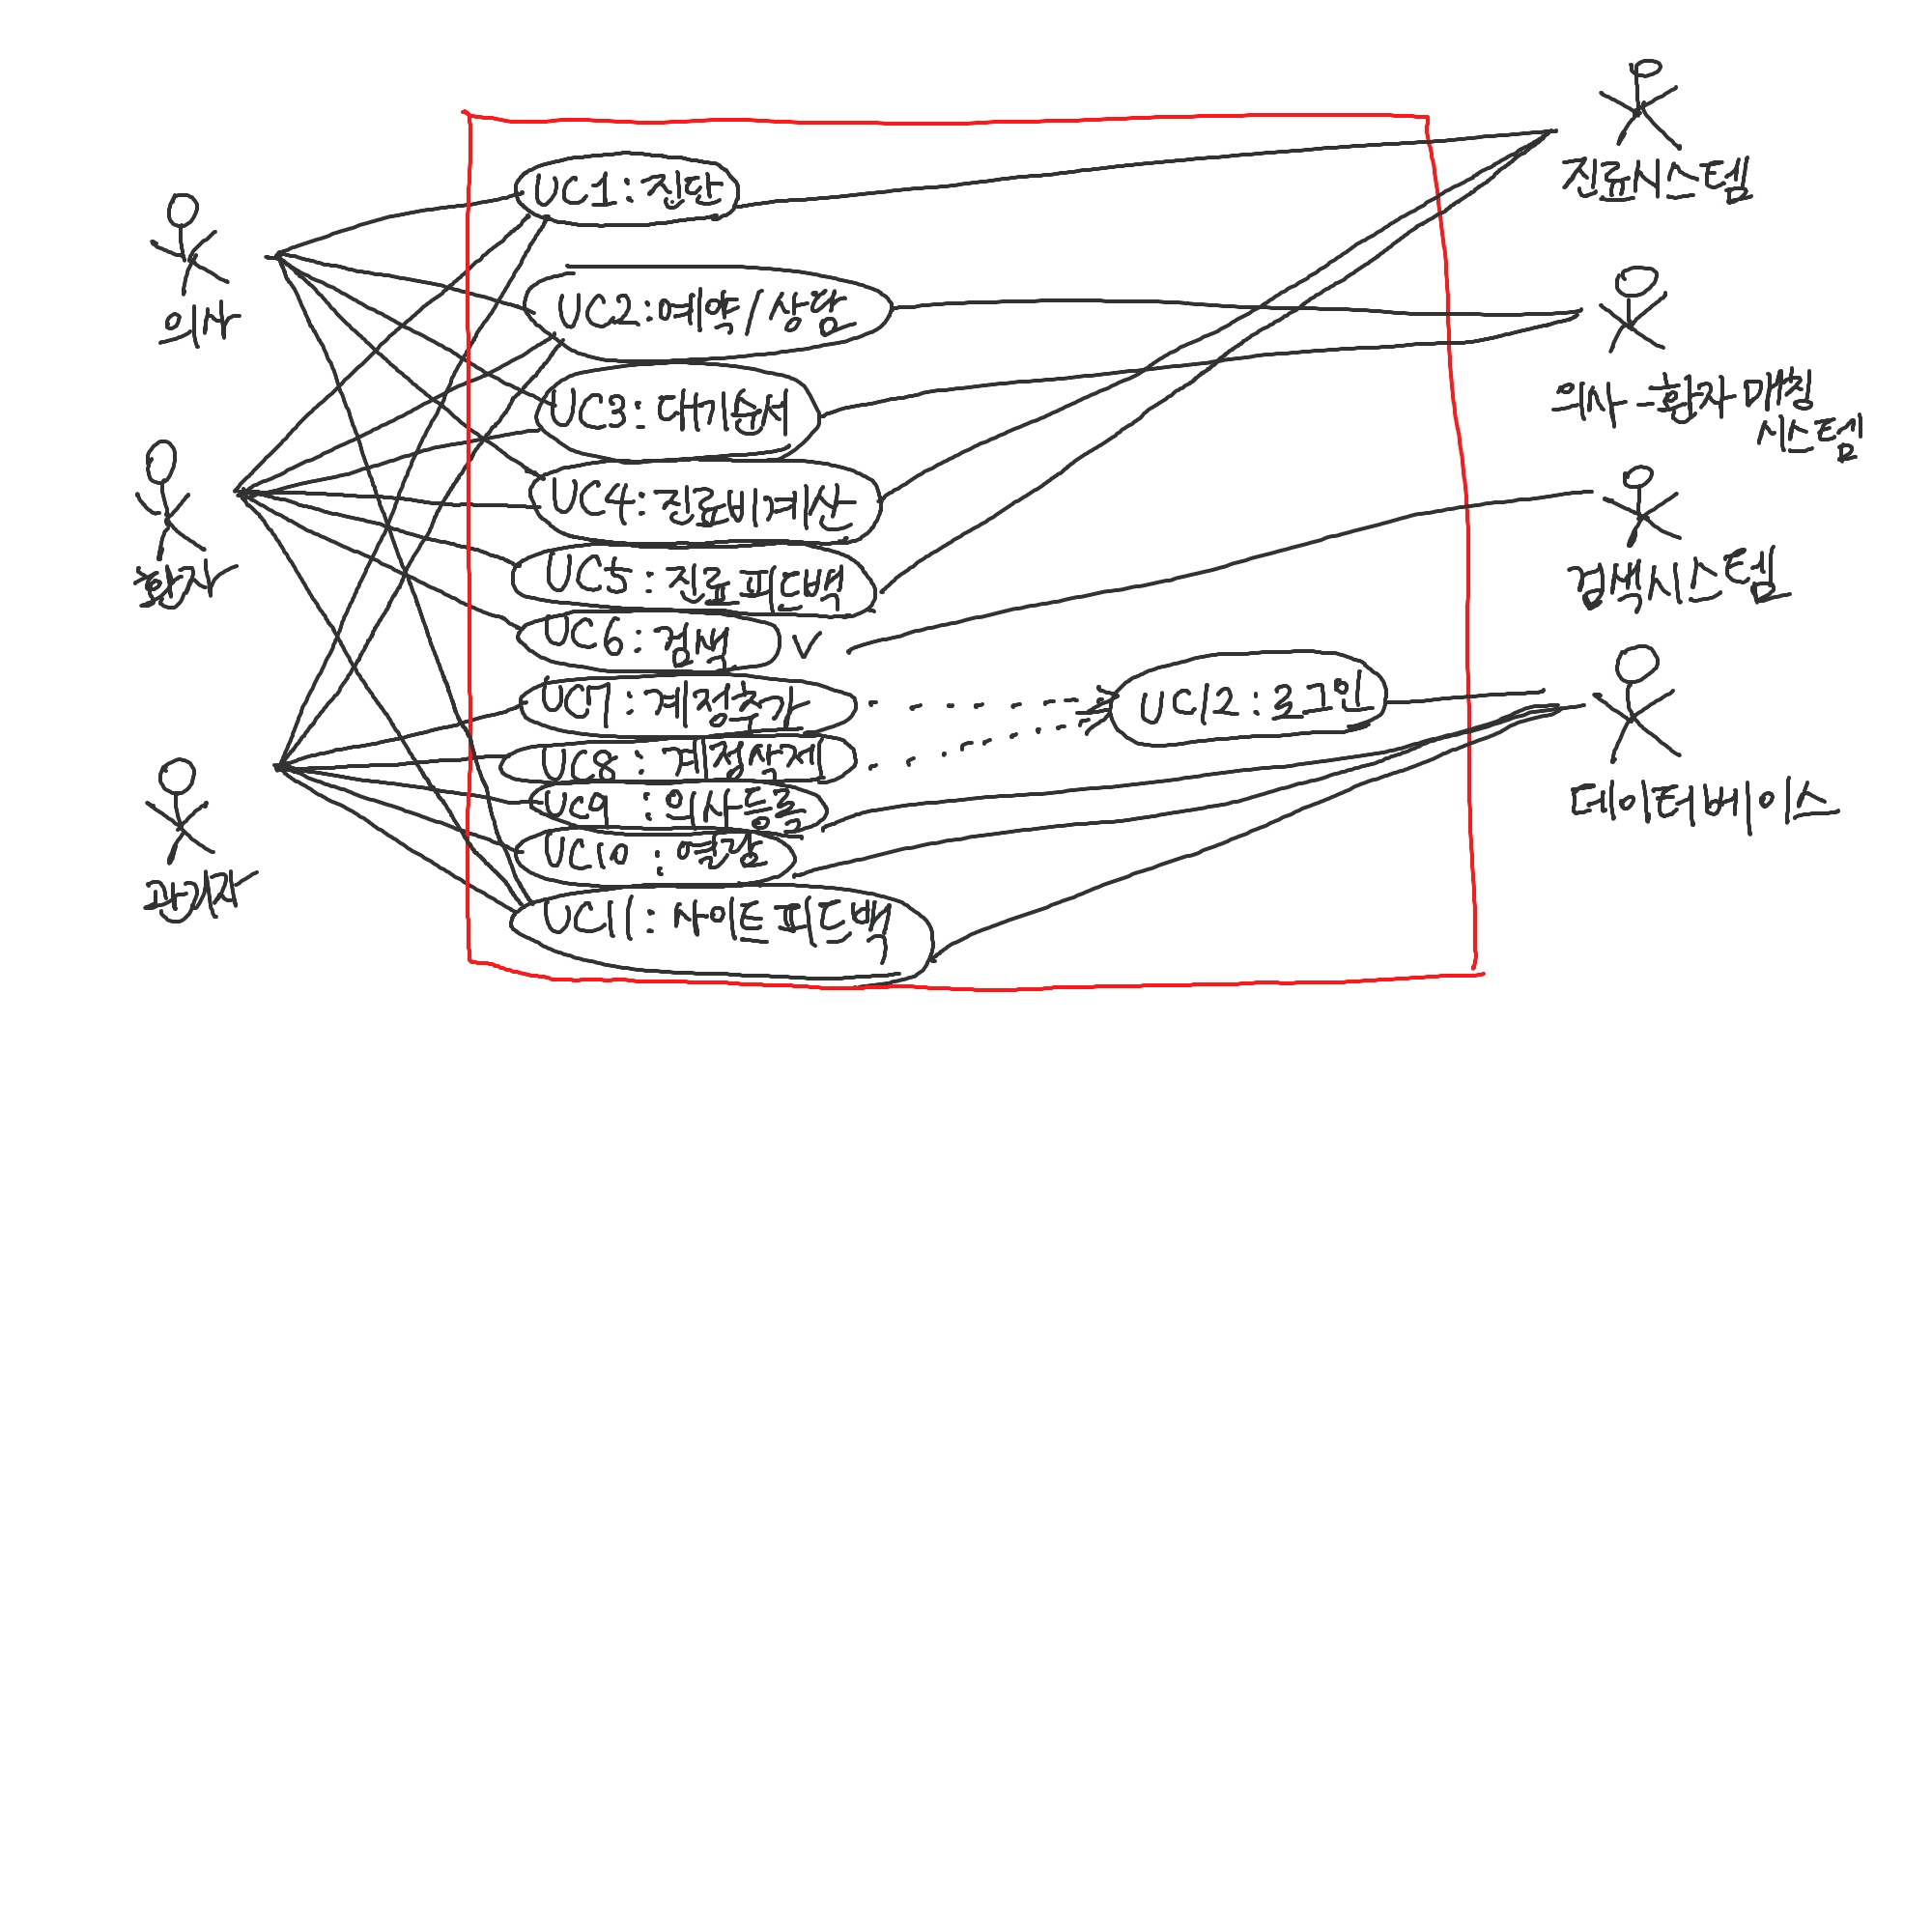 의사
환자
관리자
UC1: 진단
UC2: 예약/상황
UC3: 대기순서
UC4: 진료비계산
UC5: 진료피드백
UC6: 검색
UC7: 계정추가
UC8: 계정삭제
UC9: 의사등록
UC10: 역할
UC11: 사이트피드백
UC12: 로그인
진료시스템
의사-환자매칭
시스템
검색시스템
데이터베이스